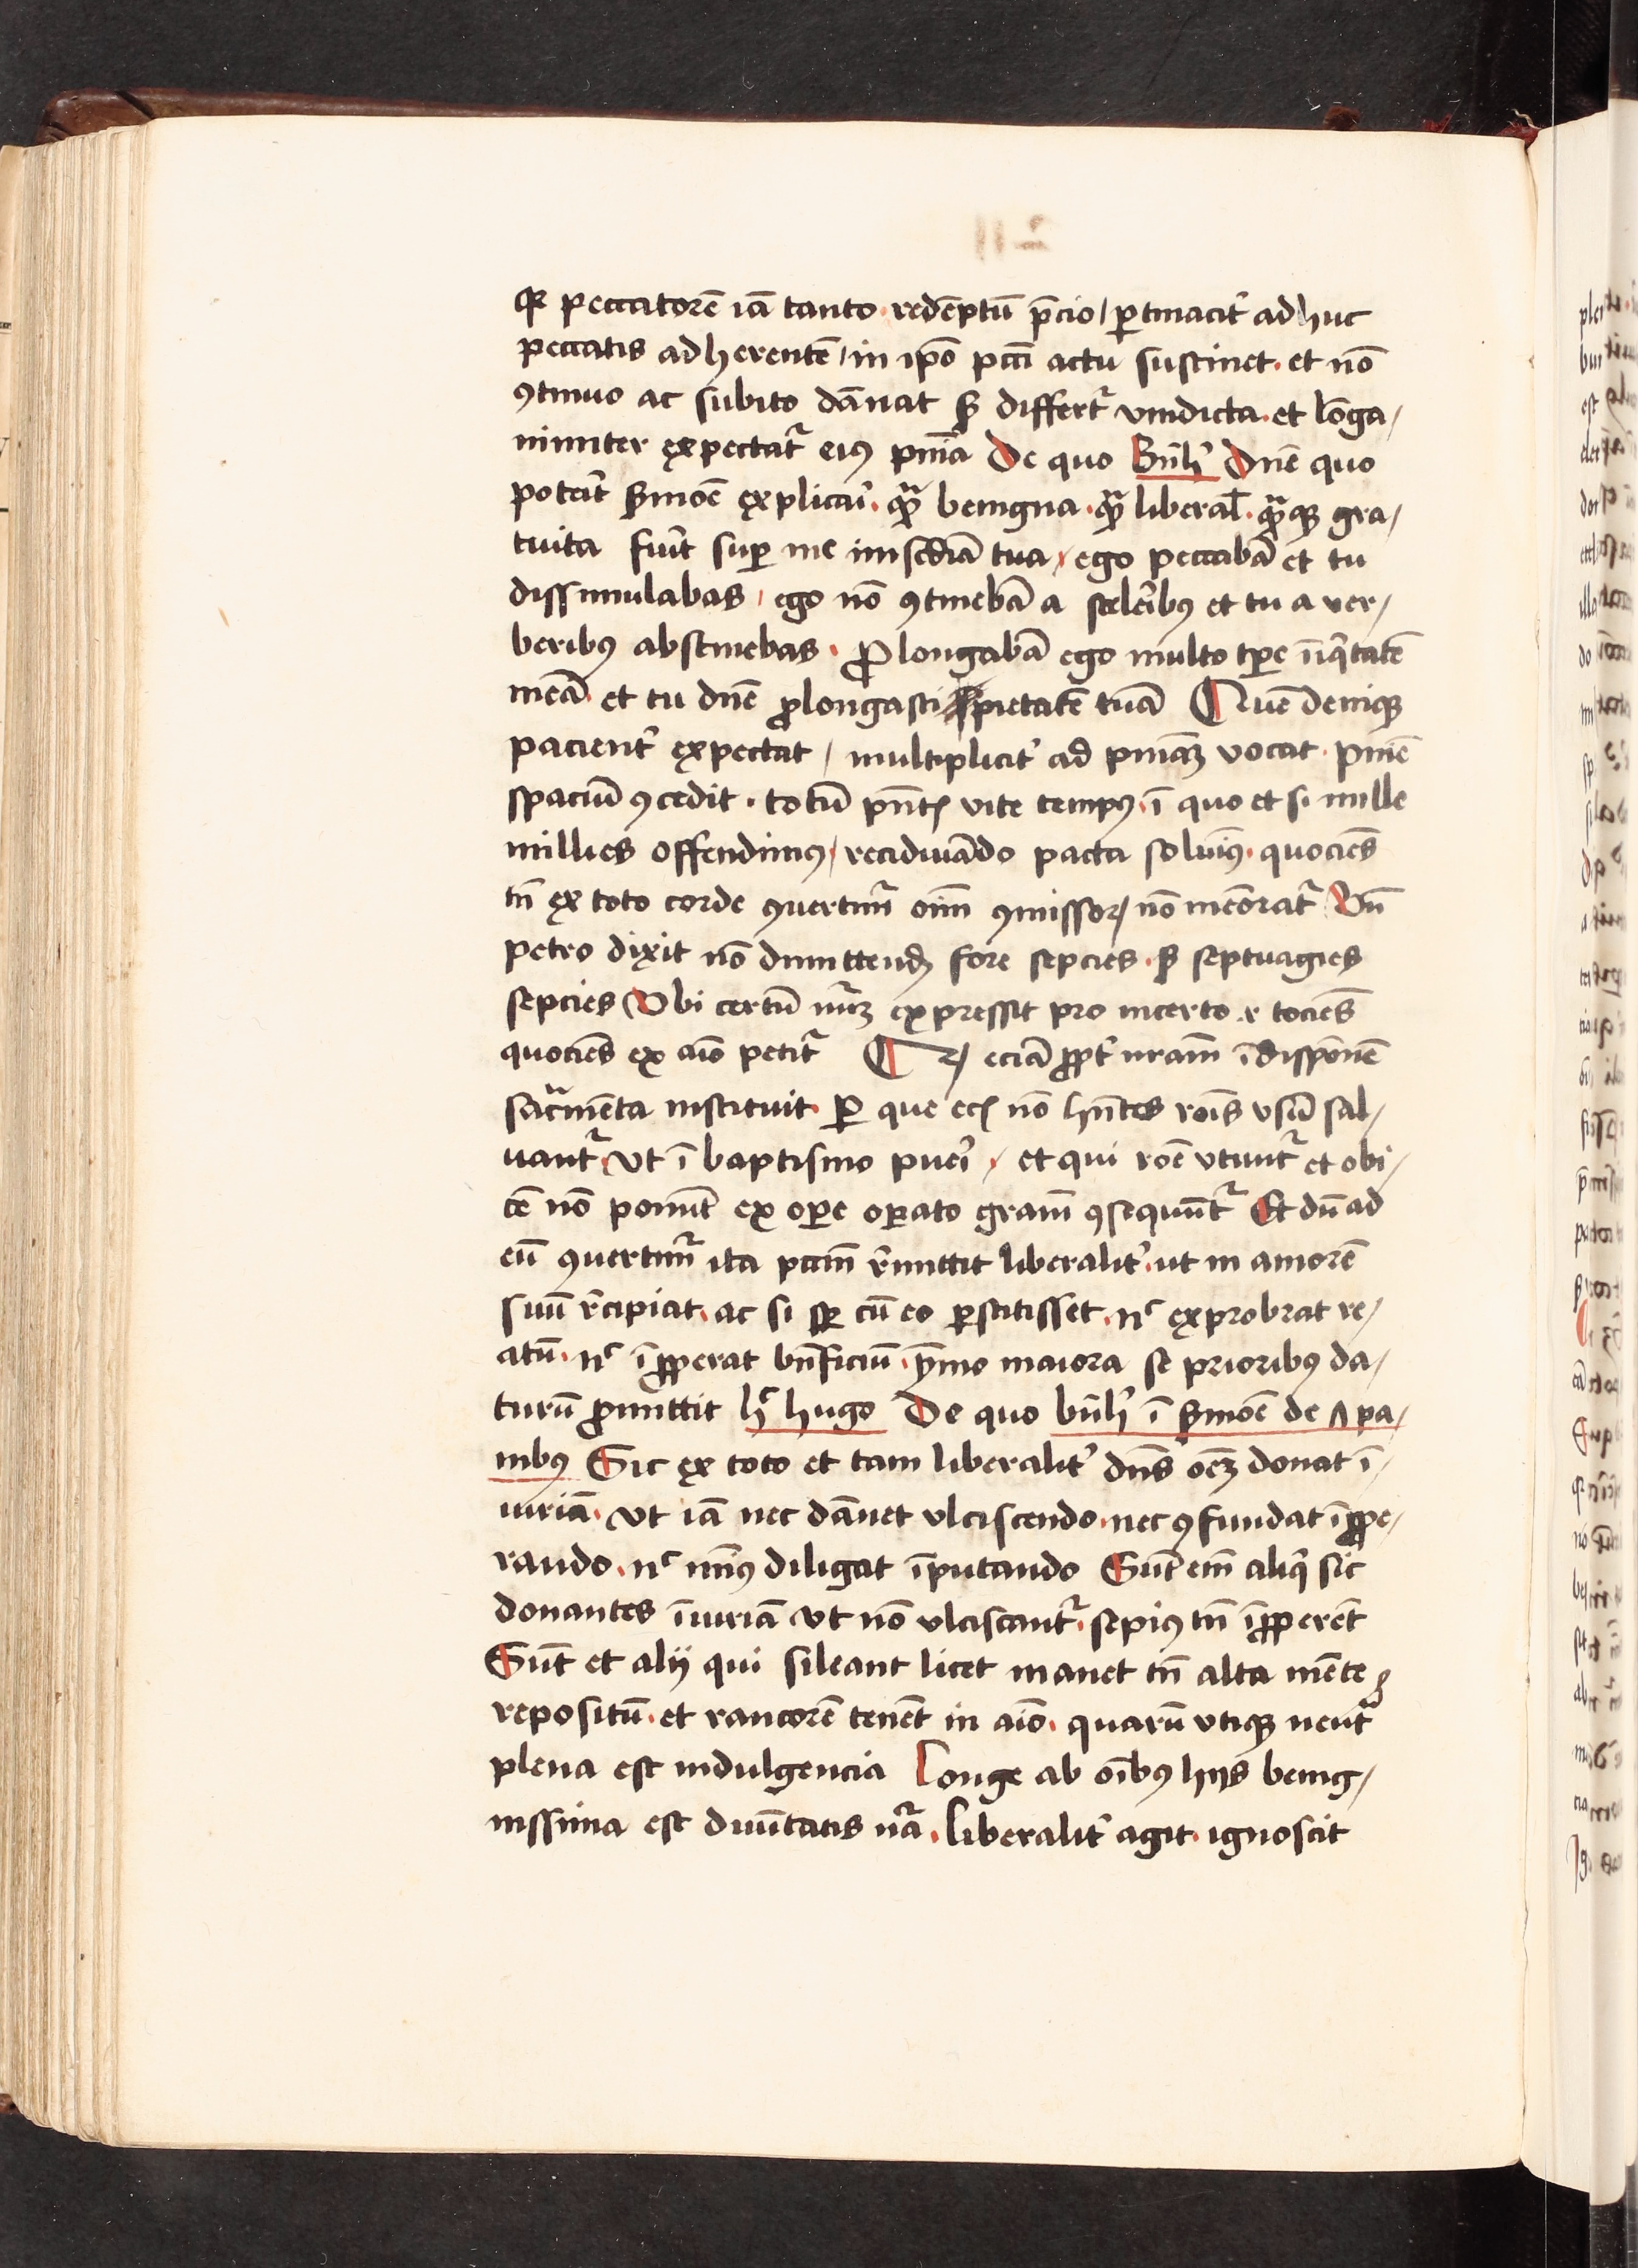 qꝛ peccatorē iā tanto redēptū p̄cio / ꝑtinacit᷑ adhuc
peccatis adherentē / in ip̄o pc̄ti actu sustinet · et nō
ꝯtinuo ac subito dānat sꝫ differt᷑ vindicta · et lōga/
nimiter expectat᷑ eiꝰ pn̄ia De quo Bn̄h᷑ Dn̄e quo
poteīt s̄moē explicāi · qᷓꝫ benigna · qᷓꝫ liberaƚ · qᷓꝫqꝫ gra/
tuita fuīt suꝑ me miścdiā tua / ego peccabā et tu
dissimulabas / ego nō ꝯtinebā a scelēibꝰ et tu a ver/
beribꝰ abstinebas · Ꝓlongabā ego multo tꝑe iniq̇tatē
meā · et tu dn̄e ꝓlongasti pietatē tuā Quē deniqꝫ
pacient᷑ expectat / multiplicit᷑ ad pn̄iaꝫ vocat · pn̄īe
spaciū ꝯcedit · totū pn̄tꝭ vite tempꝰ · ī quo et si mille
millies offendimꝰ / recidiuādo pacta soluīꝰ · quociēs
tn̄ ex toto corde ꝯuertim᷑ oīm ꝯmissoꝝ nō meōrat᷑ Vn̄
petro dixit nō dimittendꝫ fore sepcies · sꝫ septuagies
sepcies Vbi certū nūꝫ expressit pro incerto · ꝛ tociēs
quociēs ex aīo petit᷑ Qꝫ eciā ꝓpt᷑ nr̄am īdisponē
sac᷑mēta instituit · Per que ecꝭ nō hn̄tes rōīs vsū sal/
uant᷑ · vt ī baptismo puēi / et qui rōe vtūnt᷑ et obi/
cē nō ponūt ex oꝑe oꝑato gr̄am ꝯsequūnt᷑ Et dū ad
eū ꝯuertim᷑ ita pc̄cm r̄mittit liberalit᷑ · ut in amorē
suū r̄cipiat · ac si sꝑ cū eo ꝑstitisset · nᶜ exprobrat re/
atū · nᶜ īꝓperat bn̄ficiū · ymo maiora se prioribꝰ da/
turū ꝓmittit hᶜ hugo De quo bn̄h᷑ ī s̄moē de ʌ pa/
nibꝰ Sic ex toto et tam liberalit᷑ dn̄s oēꝫ donat ī/
iuriā · vt iā nec dānet vlciscendo · nec ꝯfundat īꝓpe/
rando · nᶜ minꝰ diligat īputando Sūt em̄ aliq̇ sic
donantes īiuriā vt nō vlciscant᷑ · sepiꝰ tn̄ īꝓperēt
Sūt et alij qui sileant licet manet tn̄ alta mēte
repositū · et rancorē tenēt in aīo · quarū vtiqꝫ neut᷑
plena est indulgencia Longe ab oībꝰ hijs benig/
nissima est diuītatis nᷓa · liberalit᷑ agit · ignoscit